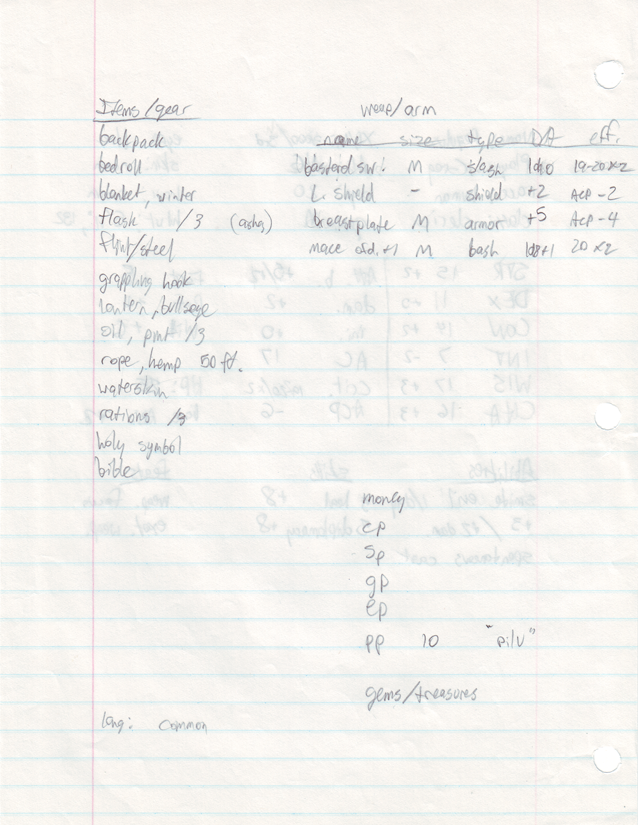 Items/gear
weap/arm
backpack
name size type D/A eff.
bedroll
bastard sw. M slash 1d10 19-20x2
blanket, winter
L. shield - shield +2 ACP -2
flask /3 (ashes)
breastplate M armor +5 ACP -4
flint/steel
mace +1 M bash 1d8+1 20 x2
grappling hook
lantern, bullseye
oil, pint /3
rope, hemp 50 ft.
waterskin
rations /3
holy symbol
bible
money
cp
sp
gp
ep
pp 10
gems/treasures
lang: common